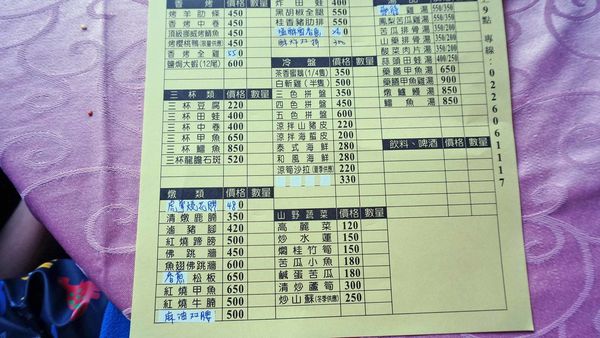 香 烤 價格 數量
烤羊肋條 450
香烤中卷 450
頂級挪威烤鯖魚
烤櫻桃鴨(限量供應)
香烤全雞 550
鹽焗大蝦(12尾) 600
三杯類 價格 數量
三杯豆腐 220
三杯田蛙 400
三杯中卷 400
三杯甲魚 650
三杯鱷魚 850
三杯龍膽石斑 520
燉 類 價格 數量
480
清燉鹿腩 350
滷豬腳 420
紅燒蹄膀 500
佛跳牆 450
魚翅佛跳牆 600
松板 650
紅燒甲魚 650
紅燒牛腩 500
麻油双腰 500
炸田蛙 400
黑胡椒金腿 550
桂香豬肋排 550
冷盤 價格 數量
茶香蜜鵝(1/4隻) 350
白斬雞(半隻) 500
三色拼盤 350
四色拼盤 450
五色拼盤 600
涼拌山豬皮 220
涼拌海蜇皮 200
泰式海鮮 280
和風海鮮 280
涼筍沙拉(夏季供應) 220
330
山野蔬菜 價格 數量
高麗菜 120
炒水蓮 150
燜桂竹筍 150
苦瓜小魚 180
鹹蛋苦瓜 180
清炒蘆筍 300
炒山蘇(冬季供應) 250
雞湯 350/550
鳳梨苦瓜雞湯 350/550
苦瓜排骨湯
山藥排骨湯
酸菜肉片湯
蒜頭田蛙湯 400
藥膳甲魚湯 650
藥膳甲魚雞湯 950
燉鱸鰻湯 850
鱷魚湯 850
飲料、啤酒 價格 數量
點 專線:0226061117